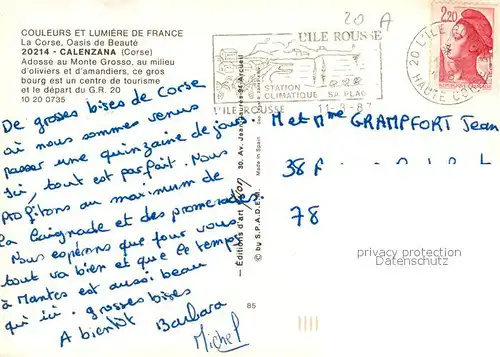 COULEURS ET LUMIÈRE DE FRANCE
La Corse, Oasis de Beauté
20214 - CALENZANA (Corse)
Adossé au Monte Grosso, au milieu
d'oliviers et d'amandiers, ce gros
bourg est un centre de tourisme
et le départ du G.R. 20
10 20 0735
De grosses bises de Corse
où nous sommes venus
passer une quinzaine de jours.
Ici, tout est parfait. Nous
profitons au maximum de
la baignade et des promenades.
Nous espérons que pour vous
tout va bien et que le temps
à Mantes est aussi beau
qu'ici. grosses bises
A bientôt Barbara
Michel
Editions d'art
30. Av. Jean
Arcueil
Made in Spain
© by S.P.A.D.E.M.
85
20 A
L'ILE ROUSSE
STATION
CLIMATIQUE SA PLAGE
L'ILE ROUSSE
11-8-87
20 L'ILE
HAUTE CORSE
2,20
M et Mme GRAMPFORT Jean
38
78
privacy protection
watermark